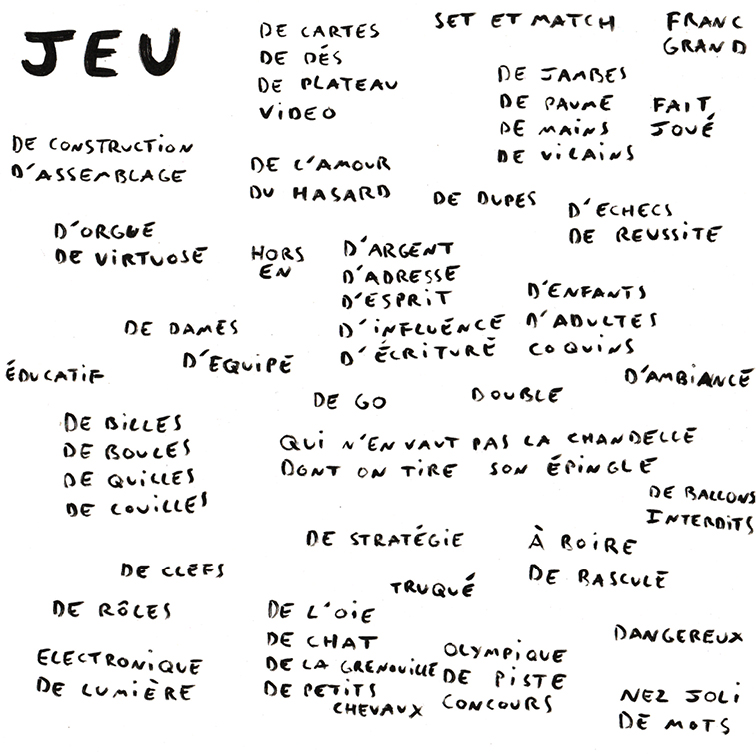 JEU
DE CARTES
DE DÉS
DE PLATEAU
VIDEO
SET ET MATCH
FRANC
GRAND
DE JAMBES
DE PAUME
DE MAINS
DE VILAINS
FAIT
JOUÉ
DE CONSTRUCTION
D'ASSEMBLAGE
DE L'AMOUR
DU HASARD
DE DUPES
D'ECHECS
DE REUSSITE
D'ORGUE
DE VIRTUOSE
HORS
EN
D'ARGENT
D'ADRESSE
D'ESPRIT
D'INFLUENCE
D'ÉCRITURE
D'ENFANTS
D'ADULTES
COQUINS
DE DAMES
D'EQUIPE
ÉDUCATIF
D'AMBIANCE
DE GO
DOUBLE
DE BILLES
DE BOULES
DE QUILLES
DE COUILLES
QUI N'EN VAUT PAS LA CHANDELLE
DONT ON TIRE SON ÉPINGLE
DE BALLONS
INTERDITS
DE STRATÉGIE
À BOIRE
DE BASCULE
DE CLEFS
TRUQUÉ
DE RÔLES
DE L'OIE
DE CHAT
DE LA GRENOUILLE
DE PETITS
CHEVAUX
OLYMPIQUE
DE PISTE
CONCOURS
DANGEREUX
ELECTRONIQUE
DE LUMIÈRE
NEZ JOLI
DE MOTS